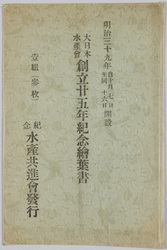 明治三十九年自十月七日至同十六日開設
大日本水產會創立廿五年紀念繪葉書
壹組(參枚)
紀念水產共進會發行